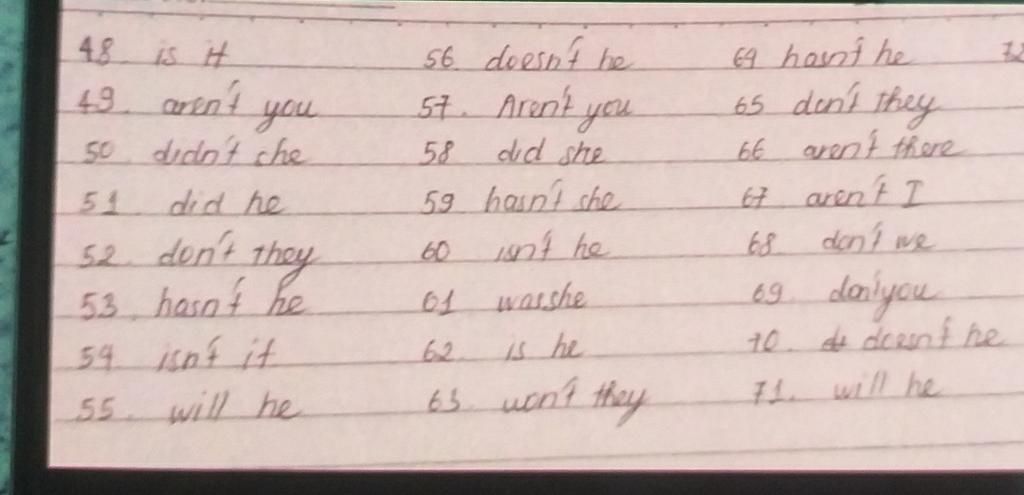 48 is it
49. aren't you
50 didn't she
51 did he
52. don't they
53. hasn't he
54 isn't it
55. will he
56. doesn't he
57. Aren't you
58 did she
59 hasn't she
60 isn't he
61 was she
62. is he
63. won't they
64 hasn't he
65 don't they
66 aren't there
67 aren't I
68 don't we
69. don't you
70. doesn't he
71. will he